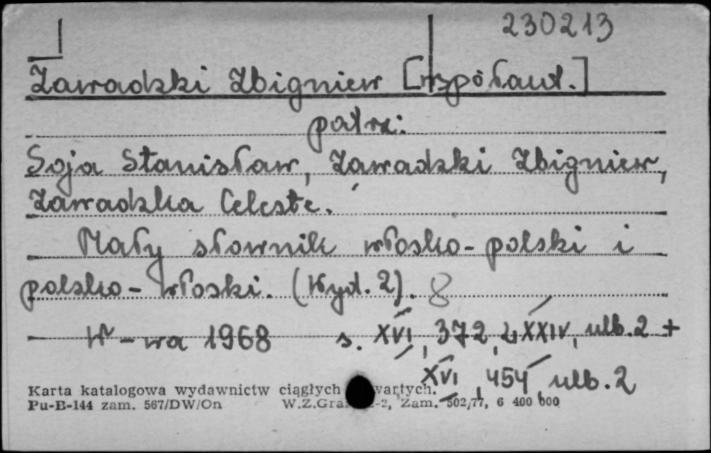 230213
Zawadzki Zbigniew [współaut.]
patrz:
Soja Stanisław, Zawadzki Zbigniew,
Zawadzka Celeste.
Mały słownik włosko-polski i
polsko-włoski. (Wyd. 2). 8
W-wa 1968 s. XVI, 372, XXIV, nlb. 2 +
XVI, 454, nlb. 2
Karta katalogowa wydawnictw ciągłych
Pu-B-144 zam. 567/DW/On W.Z.Gra Zam. 502/77, 6 400 000